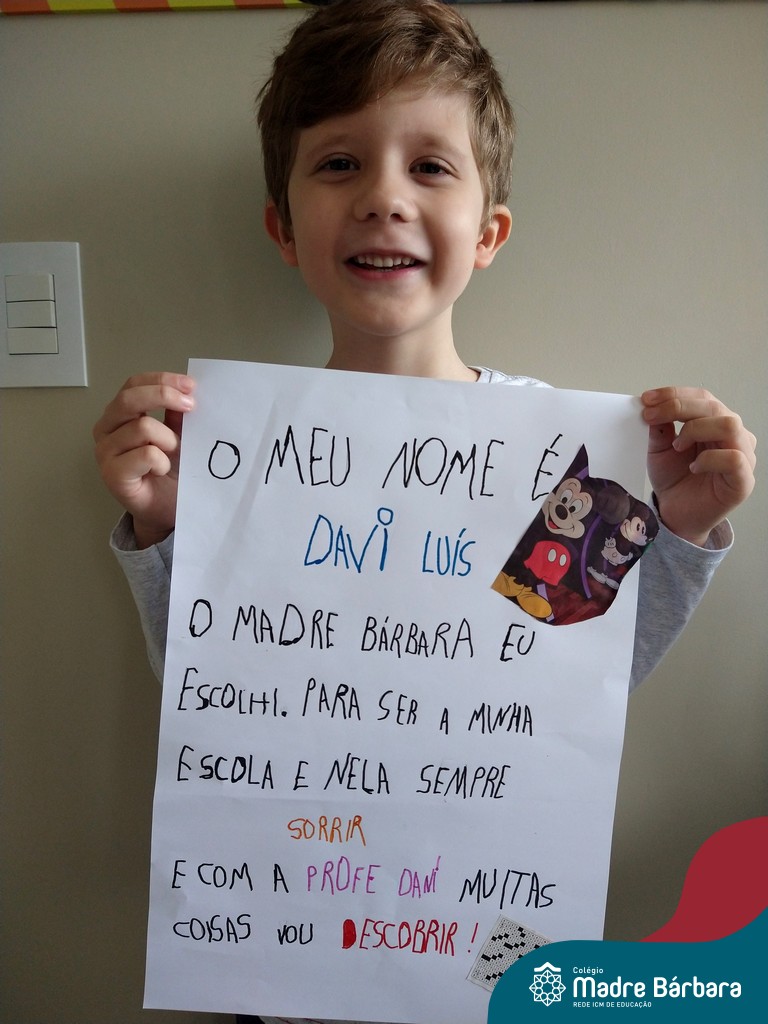 O MEU NOME É
DAVI LUÍS
O MADRE BÁRBARA EU
ESCOLHI. PARA SER A MINHA
ESCOLA E NELA SEMPRE
SORRIR
E COM A PROFE DANÍ MUITAS
COISAS VOU DESCOBRIR!
Colégio
Madre Bárbara
REDE ICM DE EDUCAÇÃO